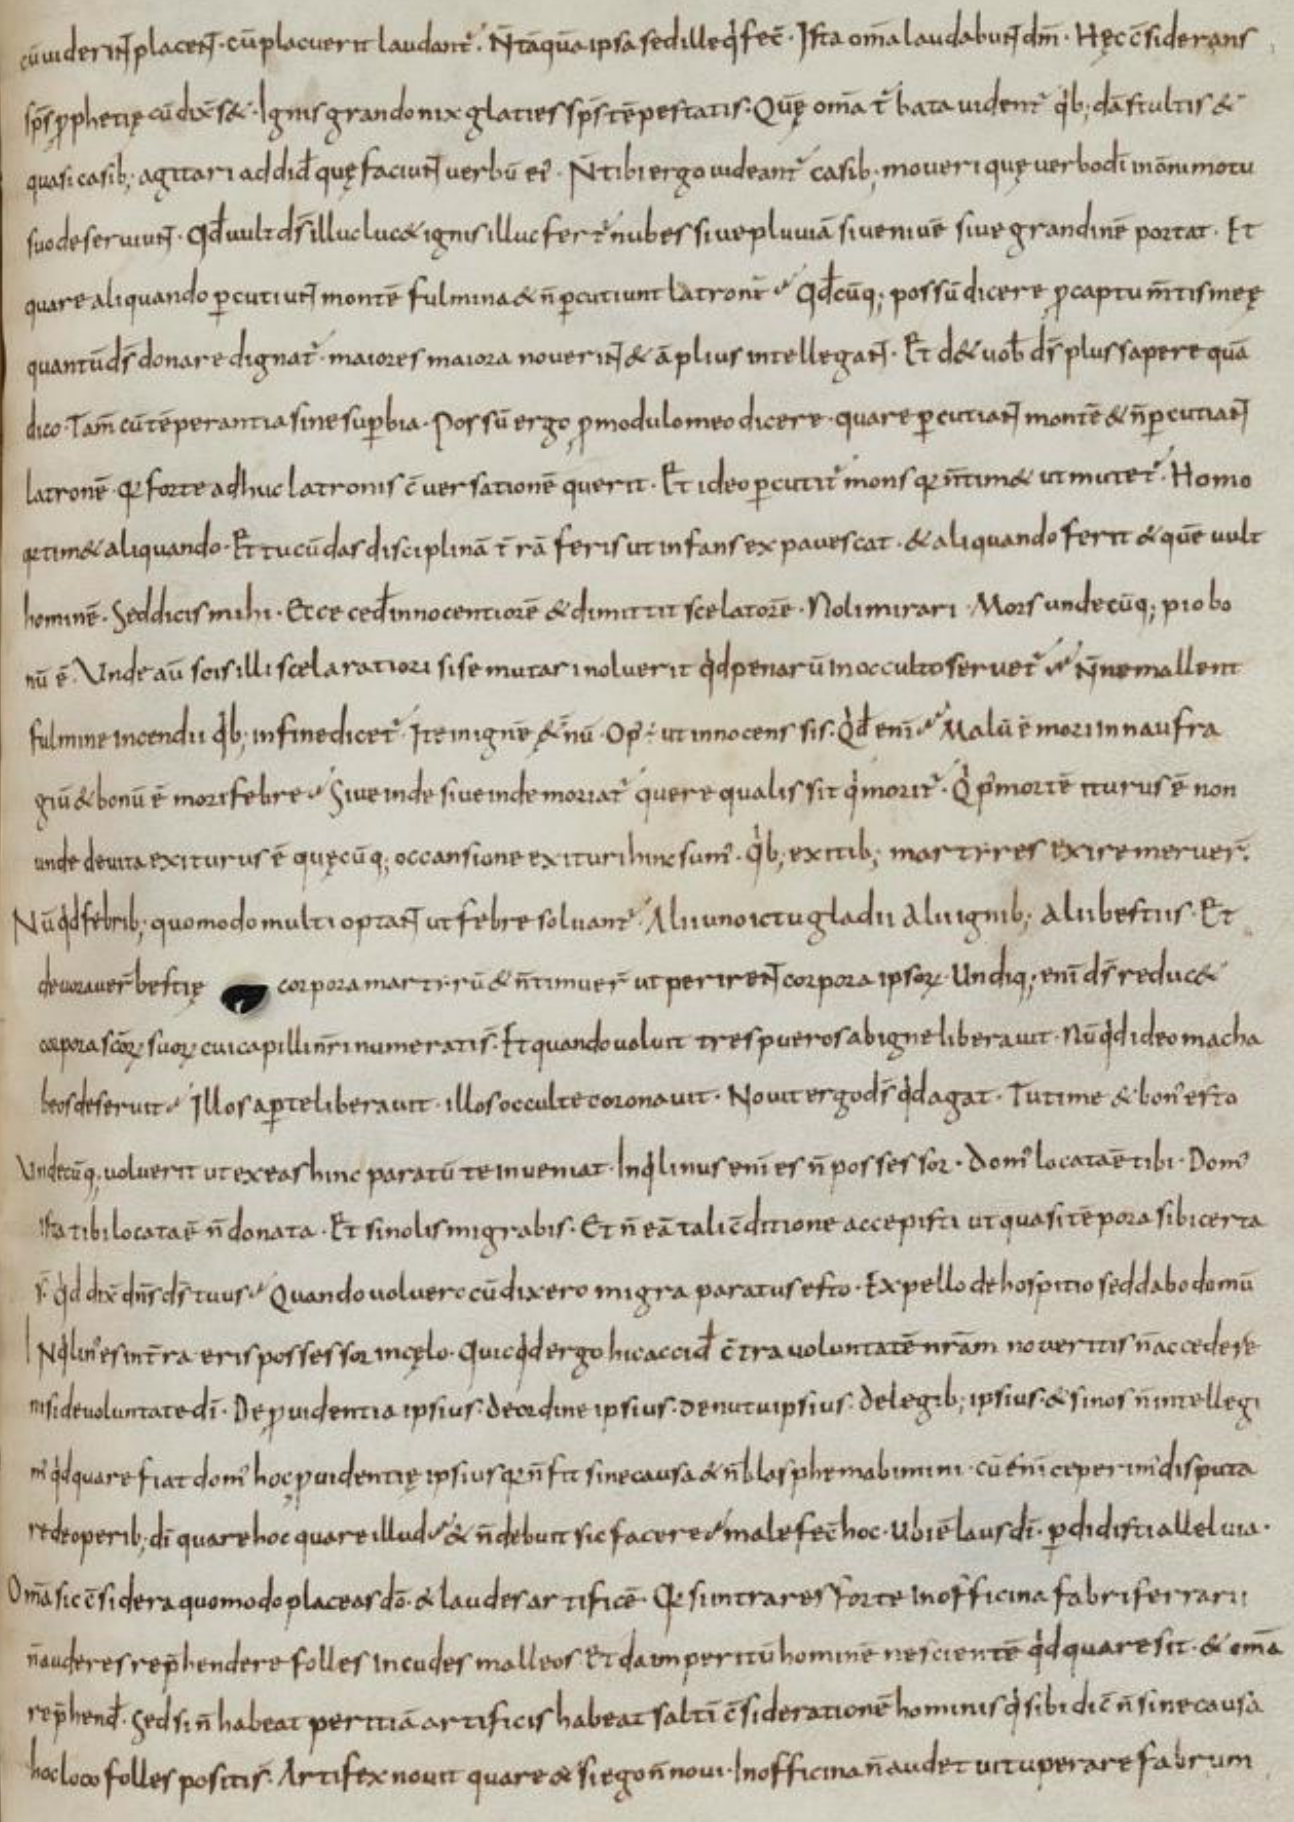 cū uiderint placent · cū placuerit laudant᷑ · N̄ tā quā ipsa sed ille q̇ fec̄ · Ista om̄a laudabunt dm̄ · Hęc c̄siderans
sp̄s ꝓphetię cū dix̄s& · Ignis grando nix glaties sp̄s tēpestatis · Quę om̄a t᷑bata uident᷑ q̇b; dā stultis &
quasi casib; agitari addid̄ quę faciunt uerbū ei᷒ · N̄ tibi ergo uideant᷑ casib; moueri quę uerbo dī in ōni motu
suo deseruiunt · Qd̄ uult ds̄ illuc luc& ignis illuc fert᷑ nubes siue pluuiā siue niuē siue grandinē portat · Et
quare aliquando ꝑcutiunt montē fulmina & n̄ ꝑcutiunt latronē Qd̄cūq; possū dicere ꝓ captu m̄tis meę
quantū ds̄ donare dignat᷑ · maiores maiora nouerint & āplius intellegant · Et d& uob̄ ds̄ plus sapere quā
dico · Tam̄ cū tēperantia sine suꝑbia · Possū ergo ꝓ modulo meo dicere · quare ꝑcutiant montē & n̄ ꝑcutiant
latronē · qr forte adhuc latronis c̄uersationē querit · Et ideo ꝑcutit᷑ mons qr n̄ tim& ut mutet᷑ · Homo
qr tim& aliquando · Et tu cū das disciplinā t̄rā feris ut infans expauescat · & aliquando ferit & quē uult
hominē · Sed dicis mihi · Ecce ced̄ innocentiorē & dimittit scelatorē · Noli mirari · Mors undecūq; pio bo
nū ē · Unde aū scis illi scelaratiori si se mutari noluerit q̇d penarū in occulto seruet᷑ N̄ne mallent
fulmine incendii q̇b; in fine dicet᷑ · Ite in ignē & n̄ū · Op᷒ ÷ ut innocens sis · Q̇d̄ enī Malū ē mori in naufra
giū & bonū ē mori febre Siue inde siue inde moriat᷑ quere qualis sit q̇ morit᷑ · Q̇ p᷒ mortē iturus ē non
unde de uita exiturus ē quęcūq; occansione exituri hinc sum᷒ · q̇b; exitib; martyres exire meruer̄ ·
Nūq̇d febrib; quomodo multi optant ut febre soluant᷑ · Alii uno ictu gladii Alii ignib; Alii bestiis · Et
deuorauer̄ bestię corpora martyrū & n̄ timuer̄ ut perirent corpora ipsoꝝ · Undiq; enī ds̄ reduc&
corpora sc̄oꝝ suoꝝ cui capilli nr̄i numerati s̄ · Et quando uoluit tres pueros ab igne liberauit · Nūq̇d ideo macha
beos deseruit Illos aꝑte liberauit · illos occulte coronauit · Nouit ergo ds̄ q̇d agat · Tu time & bon᷒ esto
Undecūq; uoluerit ut exeas hinc paratū te inueniat · Inq̇linus enī es n̄ possessor · Dom᷒ locata ē tibi · Dom᷒
ista tibi locata ē n̄ donata · Et si nolis migrabis · Et n̄ eā tali c̄ditione accepisti ut quasi tēpora sibi certa
s̄ · q̇d dix̄ dn̄s ds̄ tuus Quando uoluero cū dixero migra paratus esto · Expello de hospitio sed dabo domū
INq̇lin᷒ es in t̄ra eris possessor in cęlo · Quicq̇d ergo hic accid̄ c̄tra uoluntatē nr̄am noueritis n̄ accedere
nisi de uoluntate dī · De ꝓuidentia ipsius · de ordine ipsius · de nutu ipsius · de legib; ipsius · & si nos n̄ intellegi
m᷒ q̇d quare fiat dom᷒ hoc ꝓuidentię ipsius qr n̄ fit sine causa & n̄ blasphemabimini · cū enī ceperim᷒ disputa
re de operib; dī quare hoc quare illud & n̄ debuit sic facere male fec̄ hoc · Ubi ē laus dī · ꝑdidisti alleluia ·
Om̄a sic c̄sidera quomodo placeas dō · & laudes artificē · Qr si intrares forte in officina fabri ferrarii
n̄ auderes rep̄hendere folles incudes malleos · Et da imperitū hominē nescientē q̇d quare sit · & om̄a
rep̄hend̄ · Sed si n̄ habeat peritiā artificis habeat saltī c̄siderationē hominis q̇ sibi dic̄ n̄ sine causa
hoc loco folles positi s̄ · Artifex nouit quare & si ego n̄ noui · In officina n̄ audet uituperare fabrum